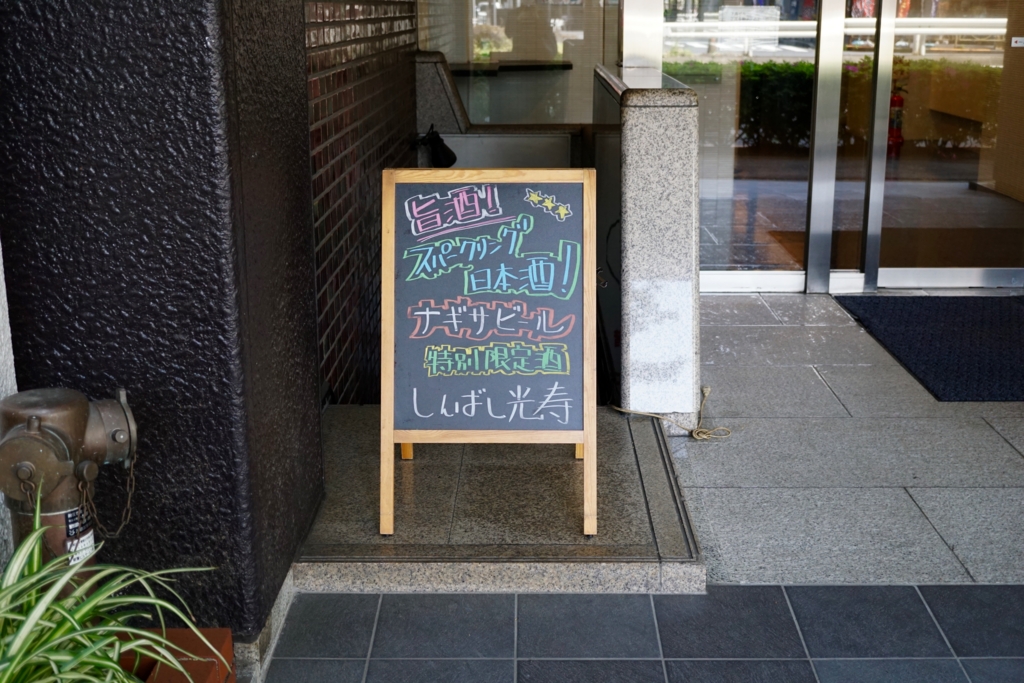 旨酒!
スパークリング
日本酒!
ナギサビール
特別限定酒
しんばし光寿